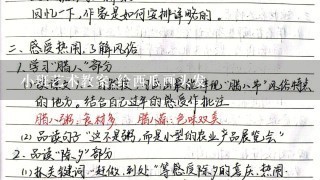 回忆一下,作家是如何安排详略的。
二、感受热闹,了解风俗
1. 学习“腊八”部分
的地方。结合自己过年的感受作批注
腊八粥:食材多 腊八蒜:色味双美
(2) 品读句子“这不是粥,而是小型的农业产品展览会”
2. 品读“除夕”部分
(1) 抓关键词:赶做、到处“等感底除夕的喜庆、热闹